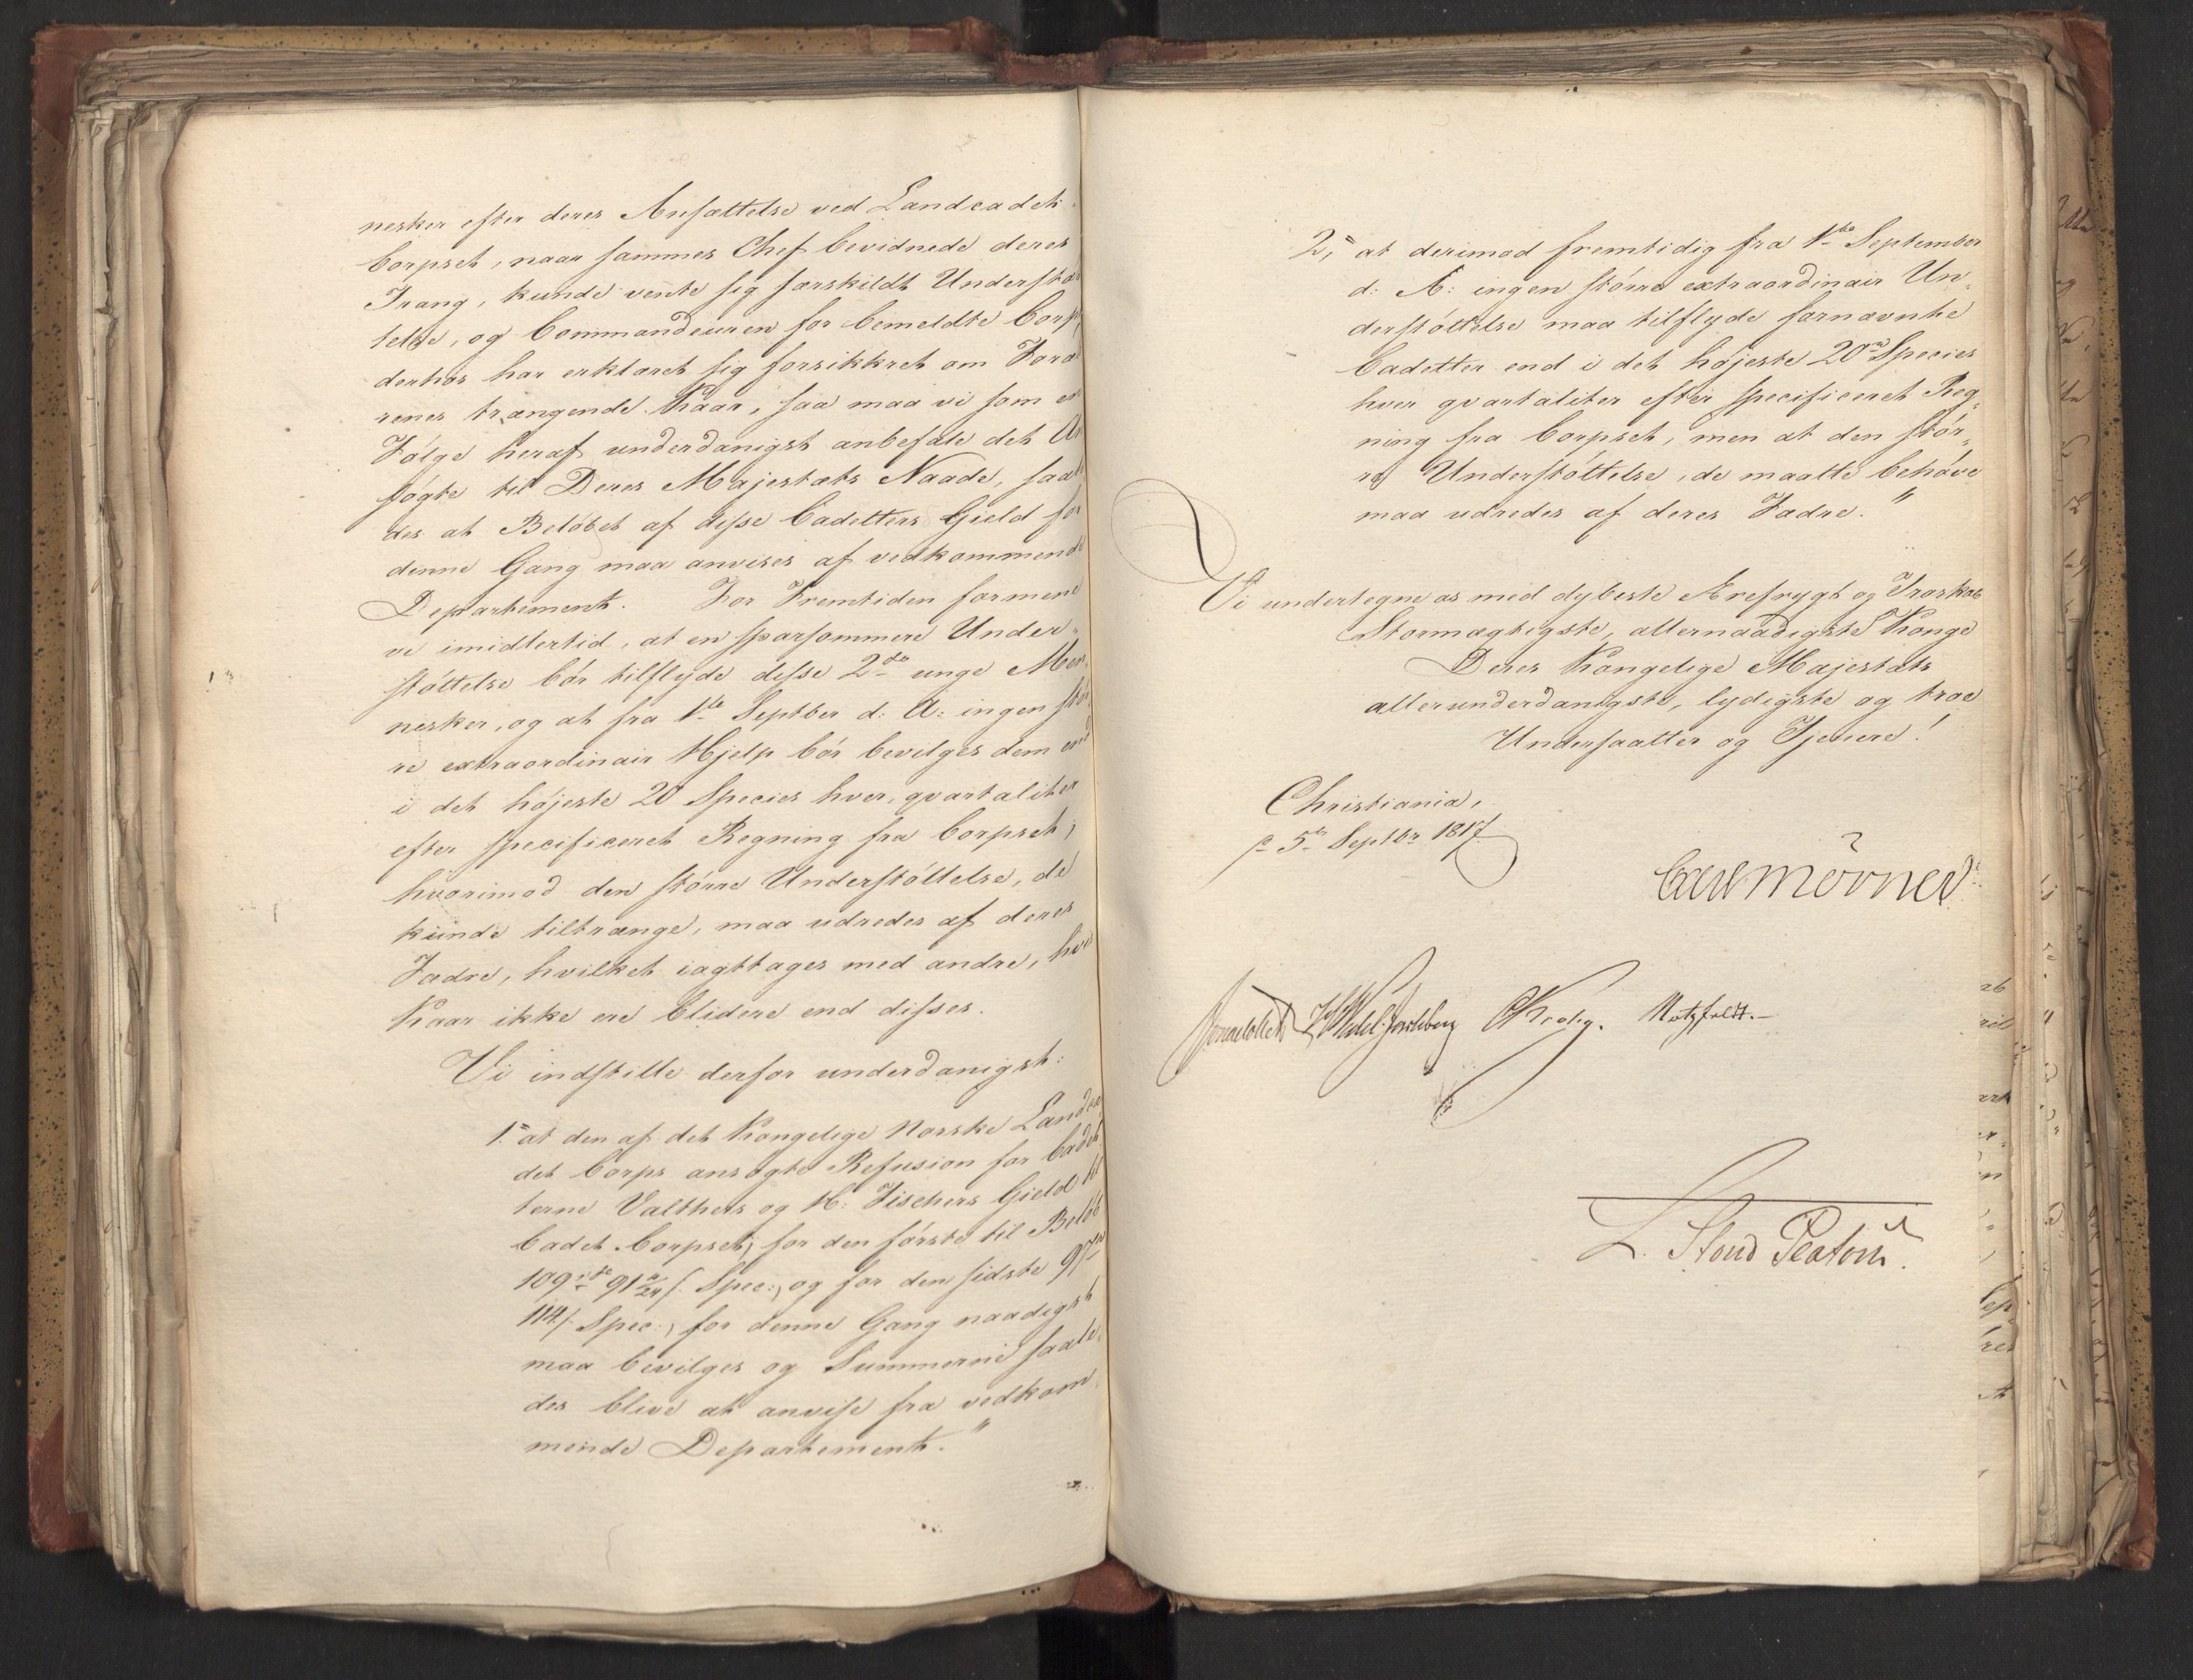 nesker efter deres Ansættelse ved Landcadet
Corpset, naar sammes Chef bevidnede deres
Trang, kunde vente sig særskildt Understøt
telse, og Commandeuren for bemeldte Corps
derhos har erklæret sig forsikkret om Foræl
drenes trængende Kaar, saa maa vi som en
Følge heraf underdanigst anbefale det An
søgte til Deres Majestæts Naade, saale
des at Beløbet af disse Cadetters Gield for
denne Gang maa anvises af vedkommende
Departement. For Fremtiden formene
vi imidlertid, at en sparsommere Under-
støttelse bør tilflyde disse 2de unge Men
nesker, og at fra 1ste Septber d: A: ingen stør
re extraordinair Hjelp bør bevilges dem end
i det højeste 20 Species hver, qvartaliter
efter specificeret Regning fra Corpset;
hvorimod den større Understøttelse, de
kunde tiltrænge, maa udredes af deres
Fædre, hvilket iagttages med andre, hvis
Kaar ikke ere blidere end disses.
Vi indstille derfor underdanigst:
1= at den af det Kongelige Norske Landca
det Corps ansøgte Refusion for Cadet
terne Valthers og H: Fischers Gield til
Cadet Corpset, for den første til Beløb
109 91 ß. Spec:, og for den sidste 97
114 ß. Spec:, for denne Gang naadigst
maa bevilges og Summerne saale
des blive at anvise fra vedkom
mende Departement."
2, at derimod fremtidig fra 1ste September
d: A: ingen større extraordinair Un-
derstøttelse maa tilflyde fornævnte
Cadetter end i det højeste 20ve Species
hver qvartaliter efter specificeret Reg-
ning fra Corpset, men at den stør-
re Understøttelse, de maatte behøve
maa udredes af deres Fædre."
Vi undertegne os med dybeste Ærefrygt og Troskab
Stormægtigste, allernaadigste Konge
Deres Kongelige Majestæts
allerunderdanigste, lydigste og troe
Undersaatter og Tjenere!
Christiania,
5te Septbr 1817.
Carl Mörner
Sommerhielm HWedel-Jarlsberg CKrohg. Motzfeldt.
L. Stoud Platou